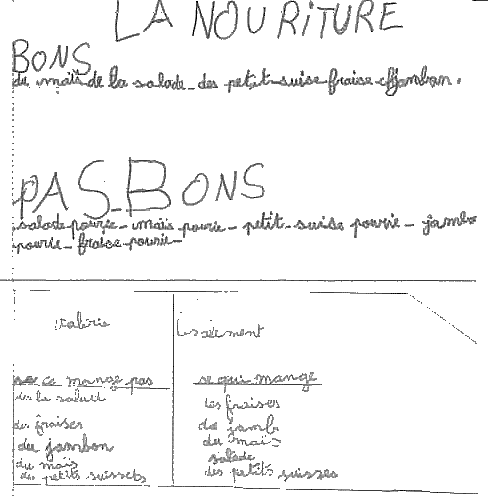 LA NOURITURE
BONS
du maïs de la salade - des petit-suise fraise jambon.
PAS-BONS
salade pourie - maïs pourie - petit-suise pourie - jambo
pourie - fraise pourie -
valérie
se ce mange pas
se qui mange
de la salad
des fraises
des fraises
du jambon
de jamb
du maïs
du maïs
salade
des petits suisses
des petits suissets